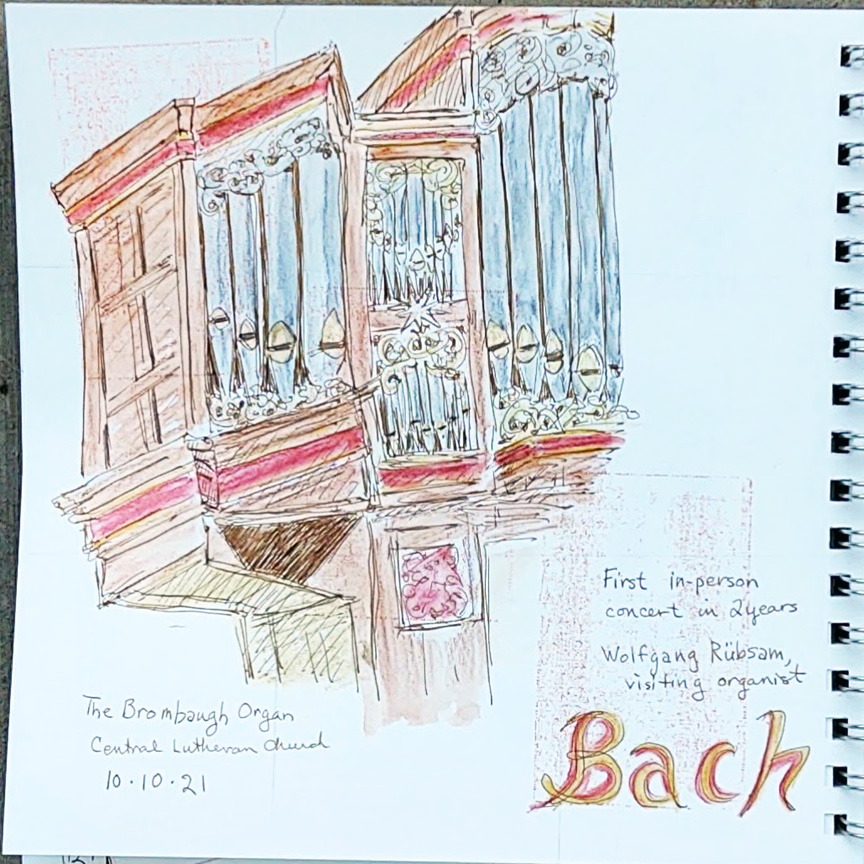 First in-person
concert in 2 years
Wolfgang Rübsam,
visiting organist
Bach
The Brombaugh Organ
Central Lutheran Church
10·10·21